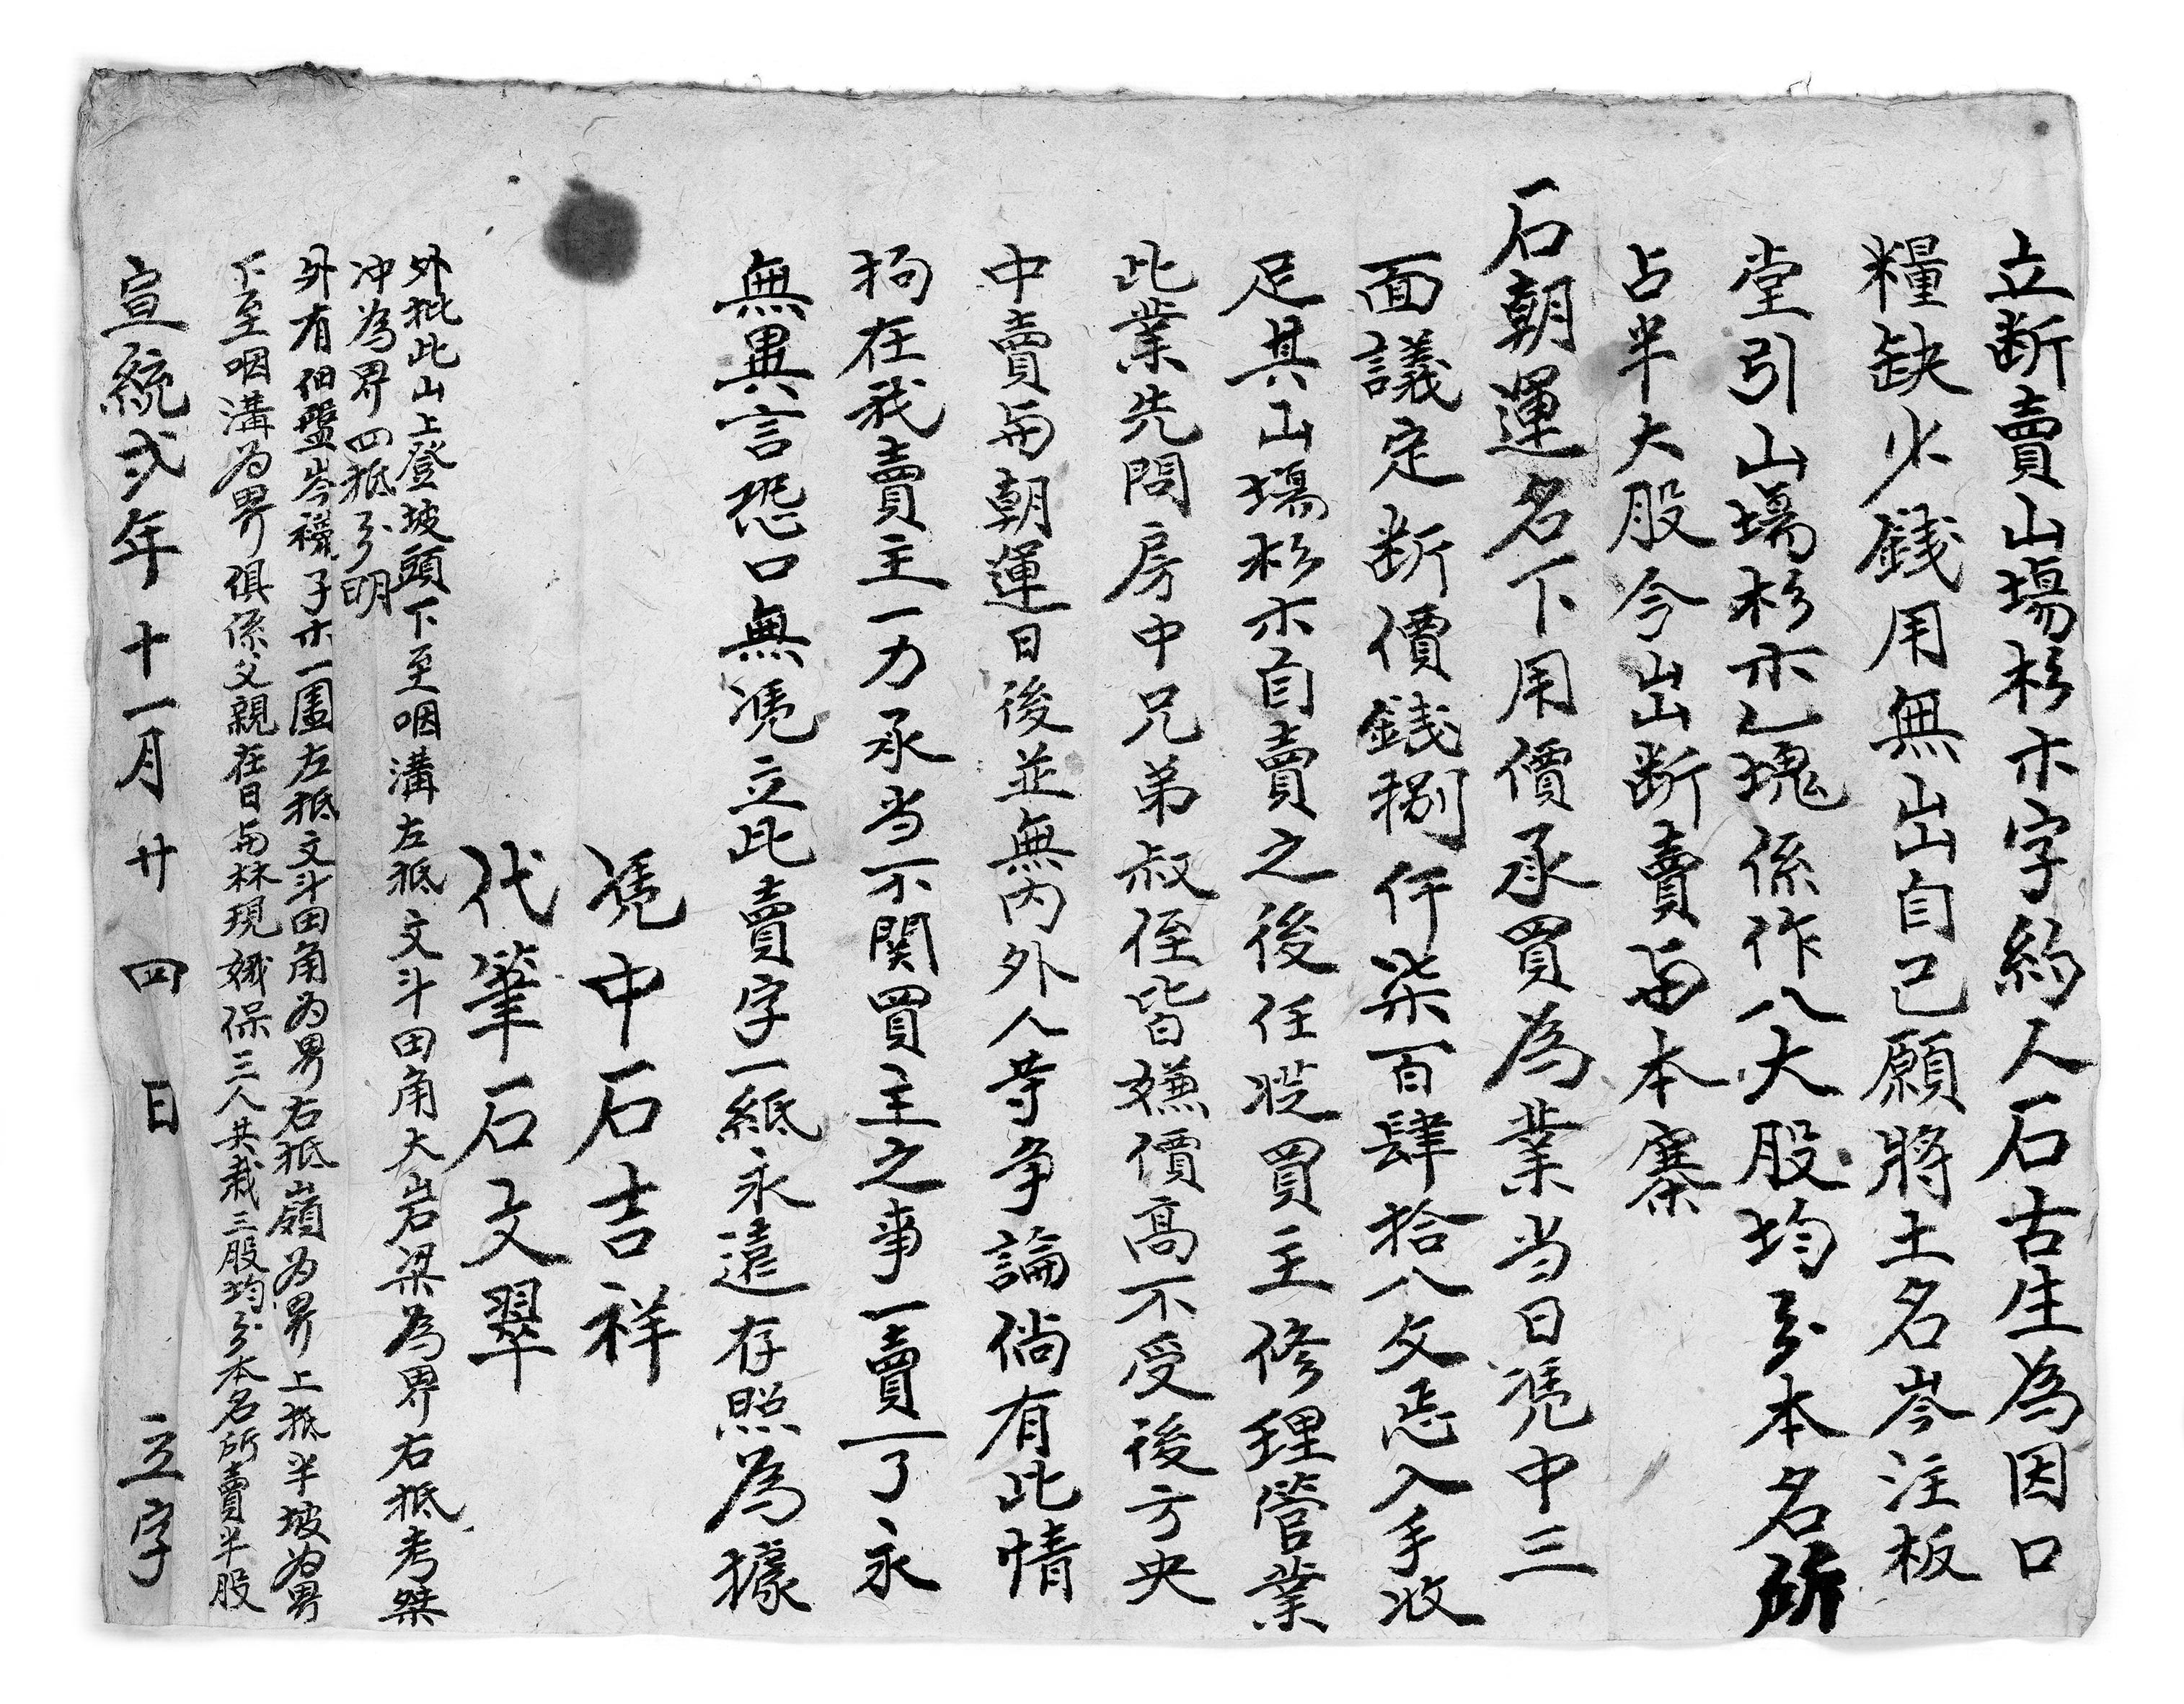 立断賣山塲杉木字約人石古生為因口
糧缺少錢用無出自己願將土名岑注板
堂引山塲杉木乙塊係作八大股均分本名所
占半大股今出断賣与本寨
石朝運名下用價承買為業当日憑中三
面議定断價錢捌仟柒百肆拾八文恁入手收
足其山塲杉木自賣之後任従買主修理營業
此業先問房中兄弟叔侄皆嫌價高不受後方央
中賣与朝運日後並無内外人等争論倘有此情
拘在我賣主一力承当不関買主之事一賣一了永
無異言恐口無憑立此賣字一紙永遠存照為據
憑中石吉祥
代筆石文翠
外批此山上登坡頭下至咽溝左抵文斗田角大岩梁為界右抵考桀
冲為界四抵分明
外有佃盤岑禳子木一團左抵文斗田角為界右抵嶺為界上抵半坡為界
下至咽溝為界俱係父親在日与林現嬂保三人共栽三股均分本名所賣半股
宣統弍年十一月廿四日 立字